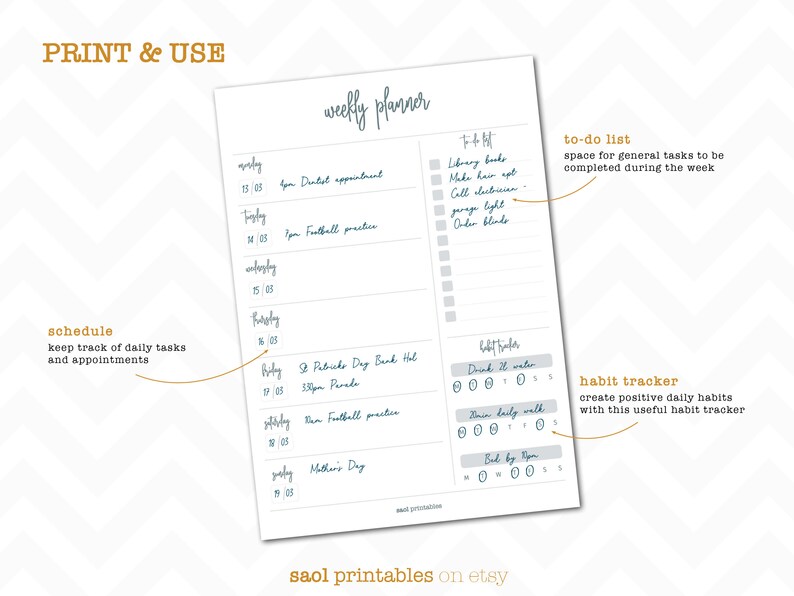 PRINT & USE
weekly planner
monday
13 | 03
4pm Dentist appointment
tuesday
14 | 03
7pm Football practice
wednesday
15 | 03
thursday
16 | 03
friday
17 | 03
St Patricks Day Bank Hol
3:30pm Parade
saturday
18 | 03
10am Football practice
sunday
19 | 03
Mother's Day
to-do list
Library books
Make hair apt
Call electrician -
garage light
Order blinds
habit tracker
Drink 2L water
M T W T F S S
20min daily walk
M T W T F S S
Bed by 10pm
M T W T F S S
saol printables
to-do list
space for general tasks to be
completed during the week
schedule
keep track of daily tasks
and appointments
habit tracker
create positive daily habits
with this useful habit tracker
saol printables on etsy